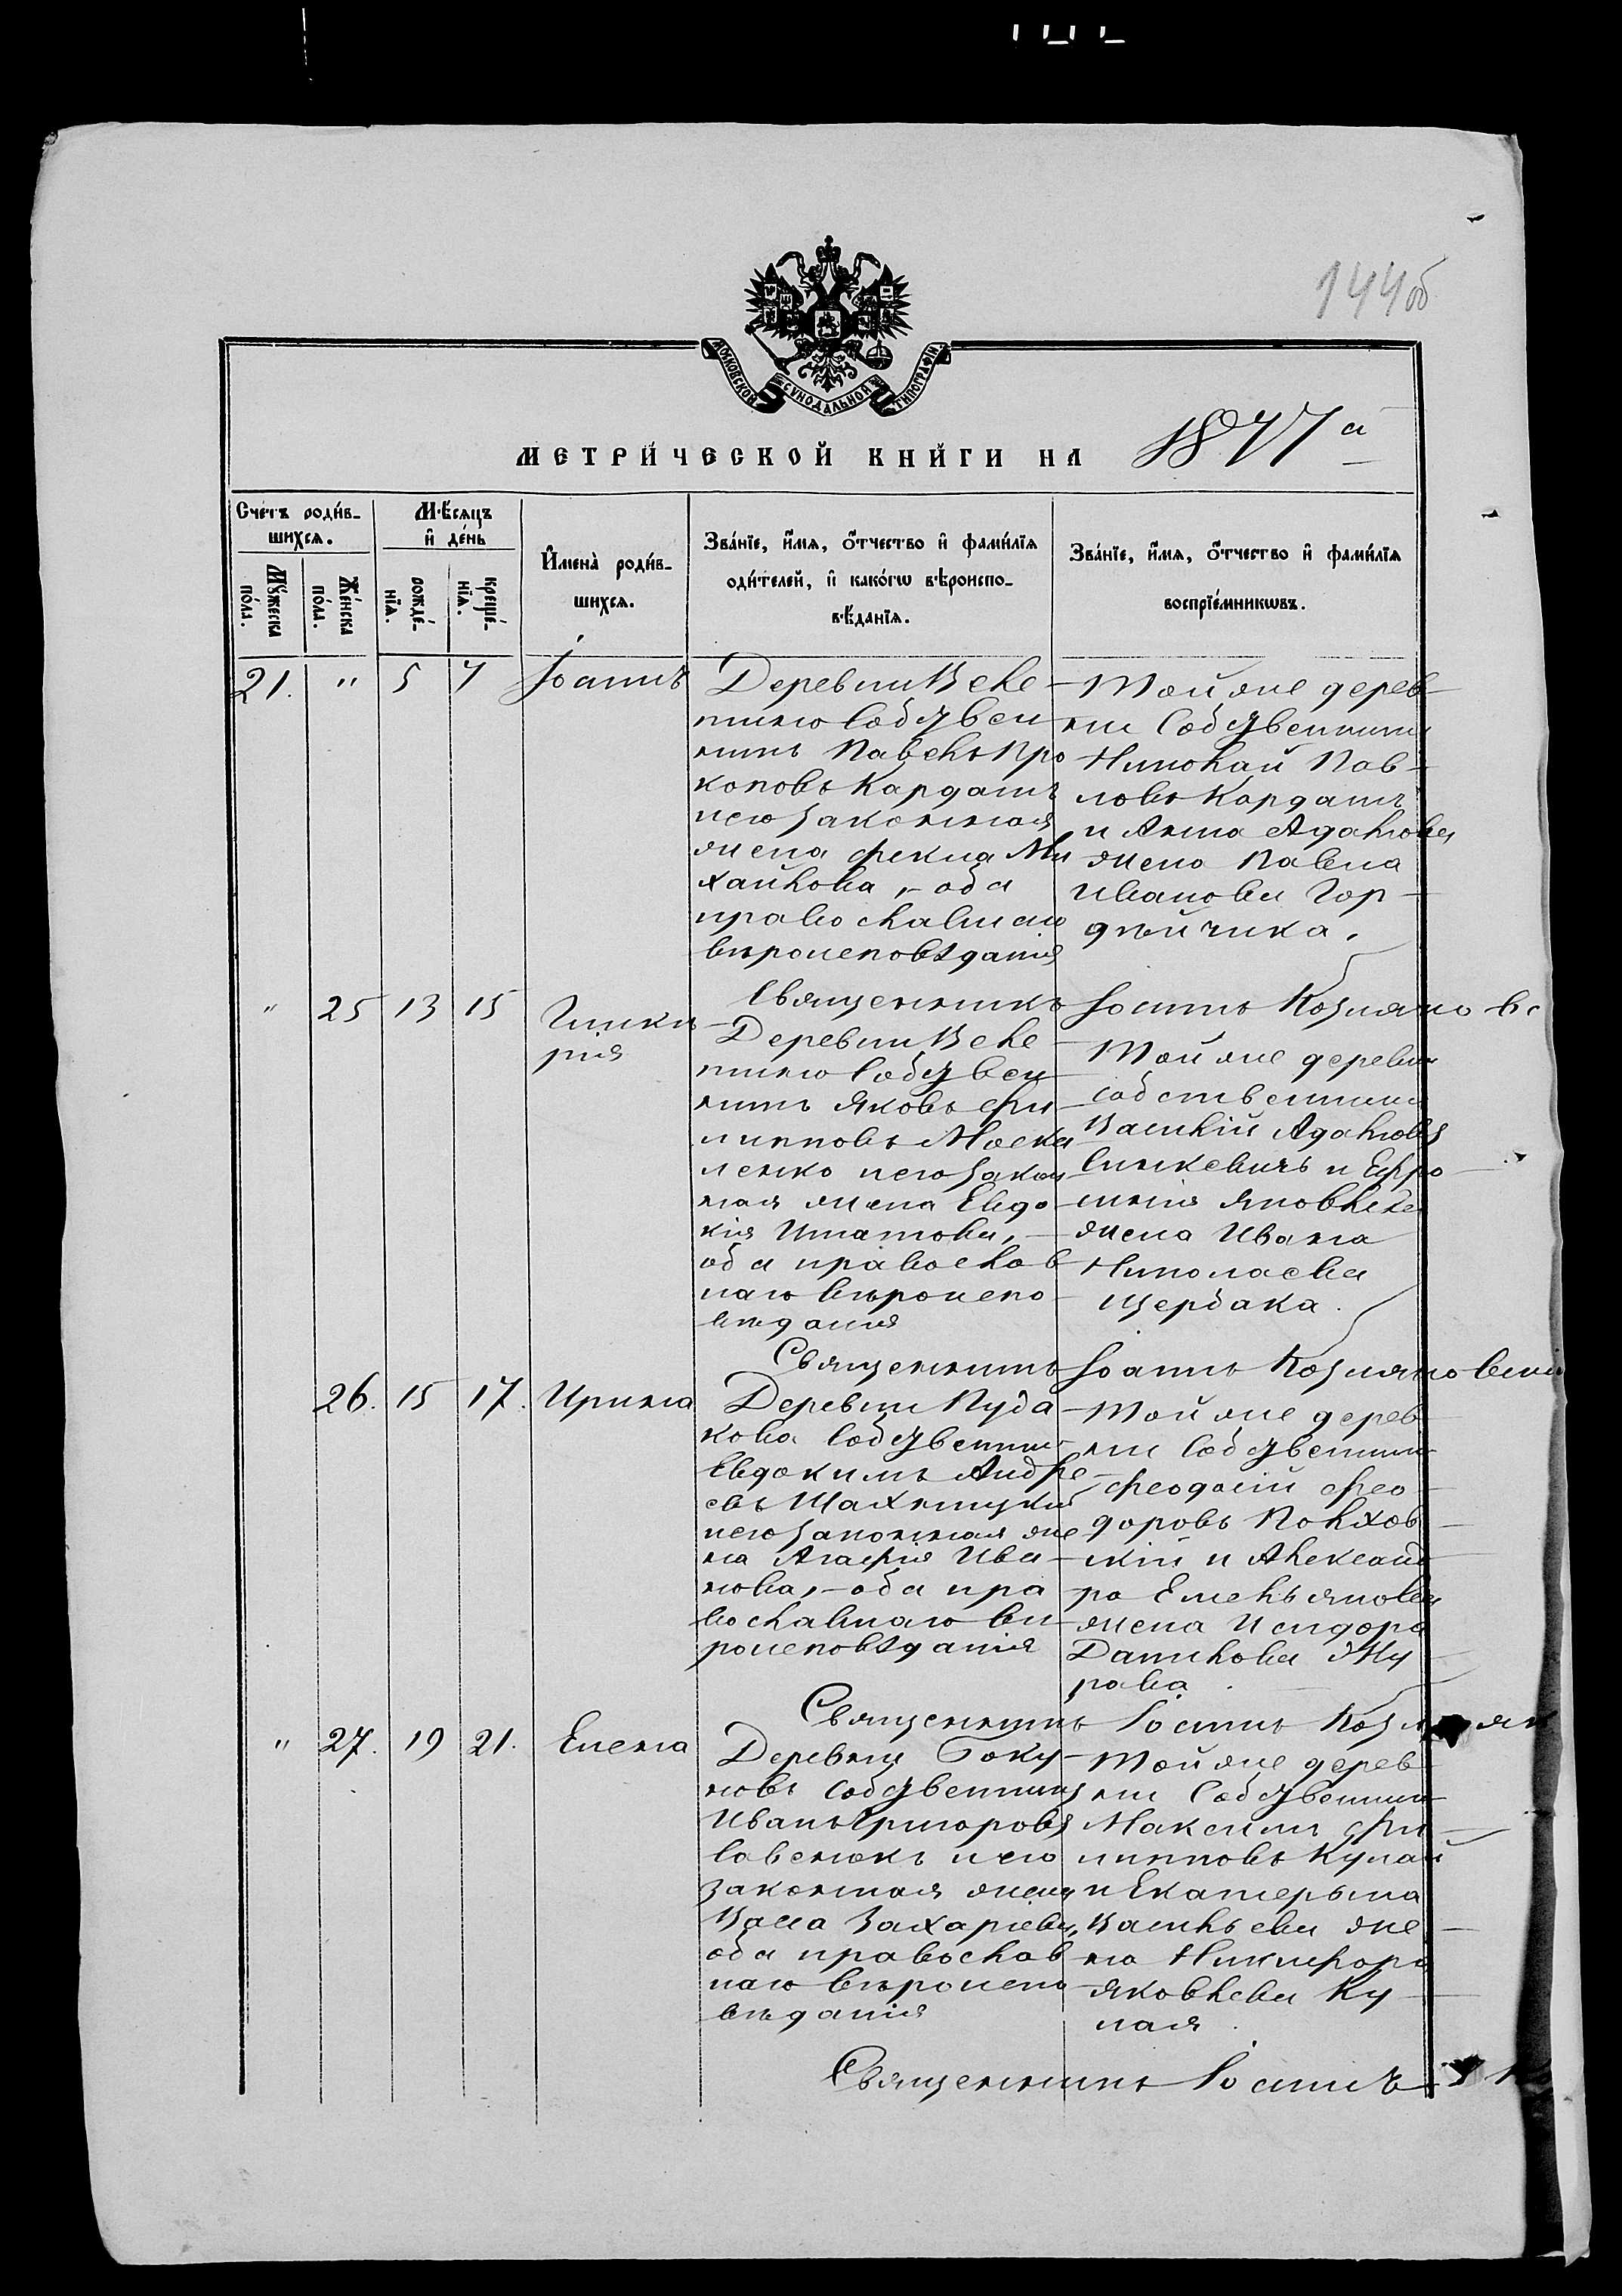 144об
МОСКОВСКОЙ СУНОДАЛЬНОЙ ТИПОГРАФІИ
МЕТРИ́ЧЕСКОЙ КНИ́ГИ НА 1877 й
Сче́тъ роди́в-
шихсѧ.
Мꙋ́жеска
по́ла.
Же́нска
по́ла.
М҃ѣсѧцъ
и҆ де́нь
рожде́-
нїѧ.
креще́-
нїѧ.
И҆мена̀ роди́в-
шихсѧ.
Зва́нїе, и҆́мѧ, ѻ҆́тчество и҆ фами́лїѧ
одителей, и҆ како́гѡ вѣроиспо-
вѣ́данїѧ.
Зва́нїе, и҆́мѧ, ѻ҆́тчество и҆ фами́лїѧ
воспрїе́мникѡвъ.
21. " 5 7 Іоаннъ
Деревни Веле-
тино Собствен
никъ Павелъ Про
коповъ Кардашъ
и его законная
жена Фекла Ми
хайлова, - оба
православнаго
вѣроисповѣданія
Той же дерев-
ни Собственники
Николай Пав-
ловъ Кардашъ
и Анна Адамова
жена Павла
Иванова Гор-
дѣйчика.
Священникъ Іоаннъ
" 25 13 15 Глике-
рія
Деревни Веле-
тино Собствен
никъ Яковъ Фи
липповъ Моска
ленко и его закон
ная жена Евдо
кія Игнатова,
оба православ
наго вѣроиспо-
вѣданія
Той же деревни
собственники
Василій Адамовъ
Синкевичъ и Ефро
синія Яковлева
жена Ивана
Николаева
Щербака.
Священникъ Іоаннъ
26. 15 17. Ирина
Деревни Руда-
кова Собственникъ
Евдокимъ Андре
евъ
и его законная же
на Агафія Ива-
нова, - оба пра
вославнаго вѣ
роисповѣданія
Той же дерев-
ни Собственникъ
Феодосій Фео-
доровъ
и Александ
ра Емельянова
жена Исидора
Данилова Жу
рава.
Священникъ Іоаннъ
" 27. 19 21. Елена
Деревни Току-
новъ Собственникъ
Иванъ Григоровъ
Савенокъ и его
законная жена
Васса Захаріева,
оба православ
наго вѣроиспо
вѣданія
Той же дерев
ни Собственникъ
Максимъ Фи
липповъ Кулай
и Екатерина
Васильева же
на Никифора
Яковлева Ку
лая.
Священникъ Іоаннъ